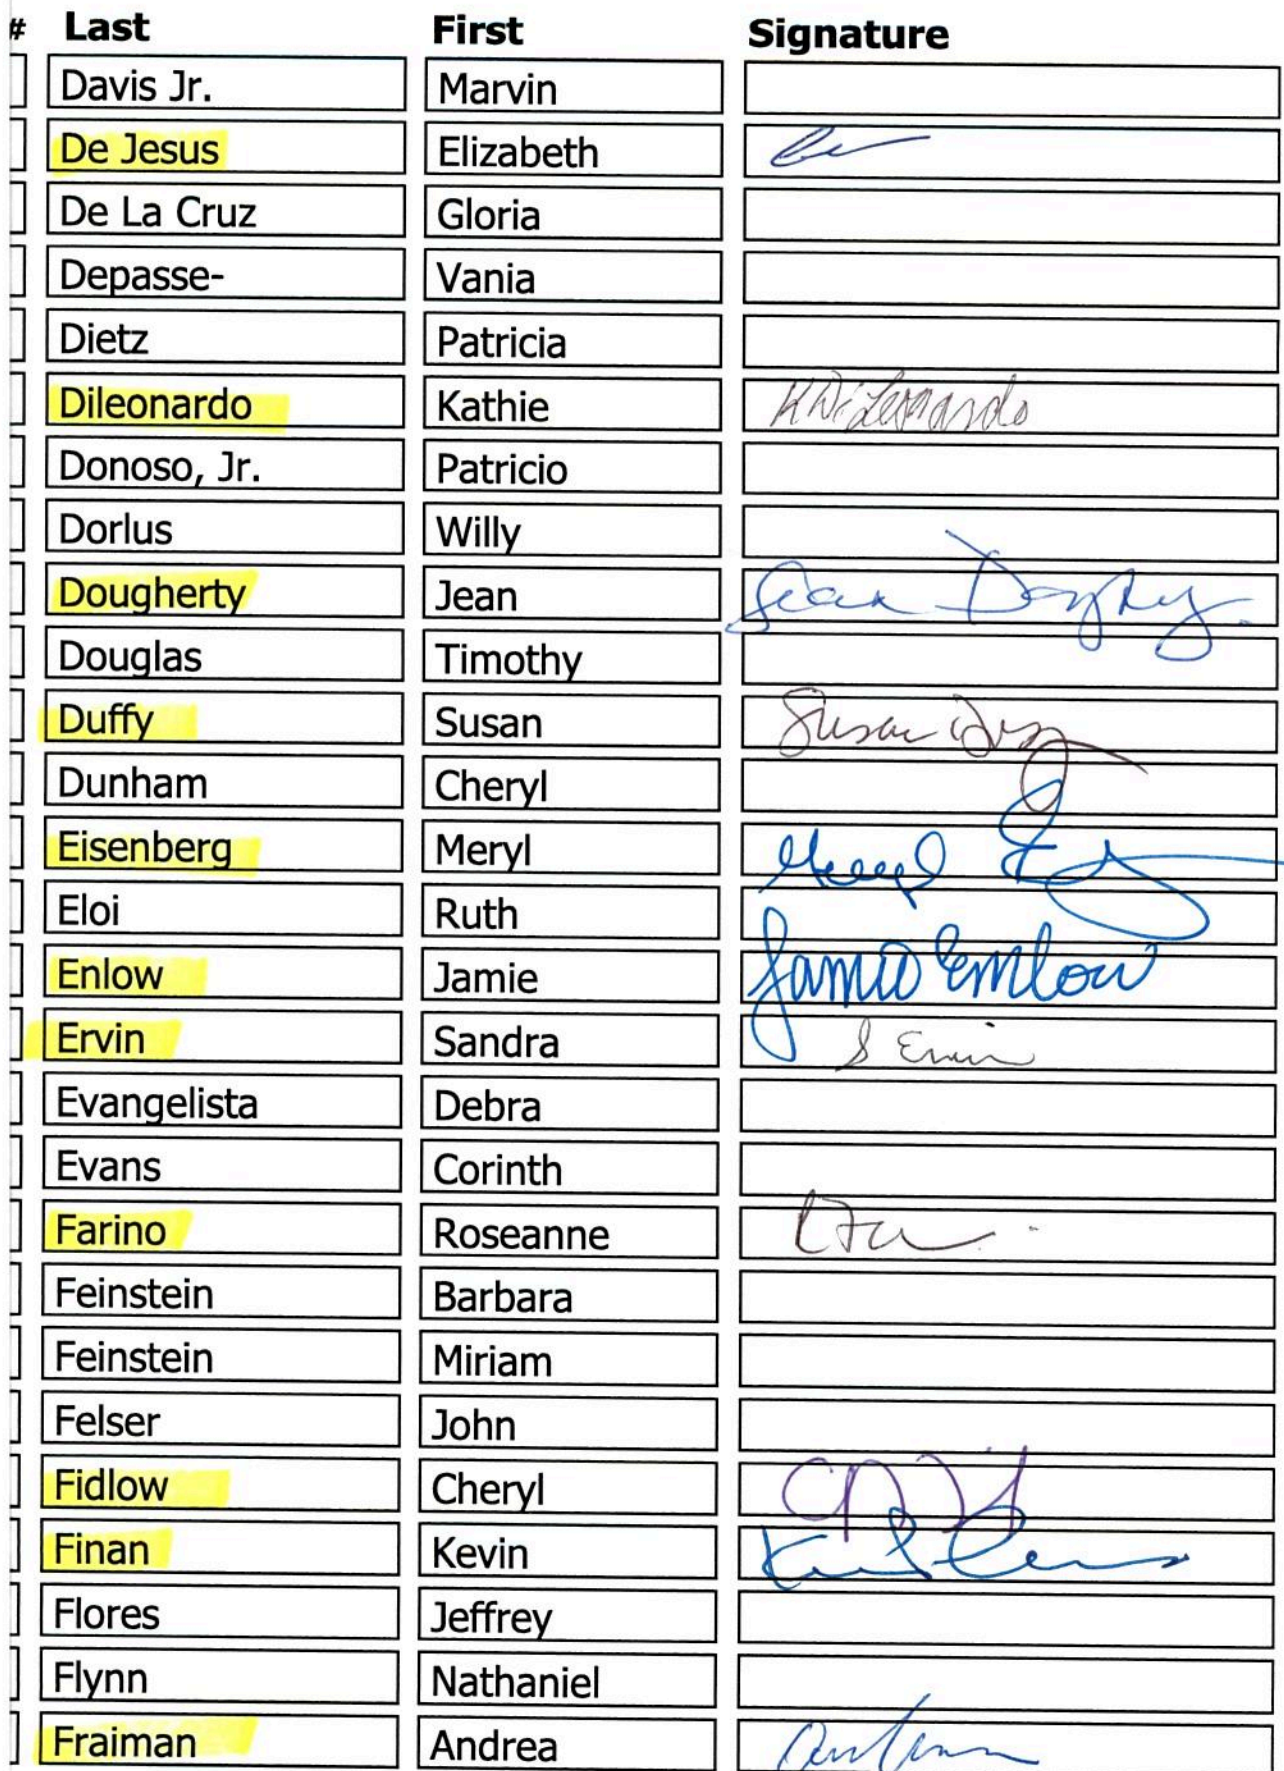 # Last First Signature
Davis Jr. Marvin
De Jesus Elizabeth
De La Cruz Gloria
Depasse- Vania
Dietz Patricia
Dileonardo Kathie K DiLeonardo
Donoso, Jr. Patricio
Dorlus Willy
Dougherty Jean Jean
Douglas Timothy
Duffy Susan Susan
Dunham Cheryl
Eisenberg Meryl Meryl
Eloi Ruth
Enlow Jamie Jamie Enlow
Ervin Sandra S Ervin
Evangelista Debra
Evans Corinth
Farino Roseanne
Feinstein Barbara
Feinstein Miriam
Felser John
Fidlow Cheryl
Finan Kevin
Flores Jeffrey
Flynn Nathaniel
Fraiman Andrea